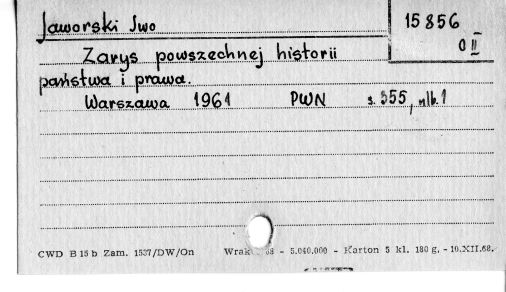 Jaworski Iwo
15 856
0 II
Zarys powszechnej historii
państwa i prawa.
Warszawa 1961 PWN s. 355, nlb. 1
CWD B 15 b Zam. 1537/DW/On - 5.040.000 - Karton 5 kl. 180 g. - 10.XII.68.